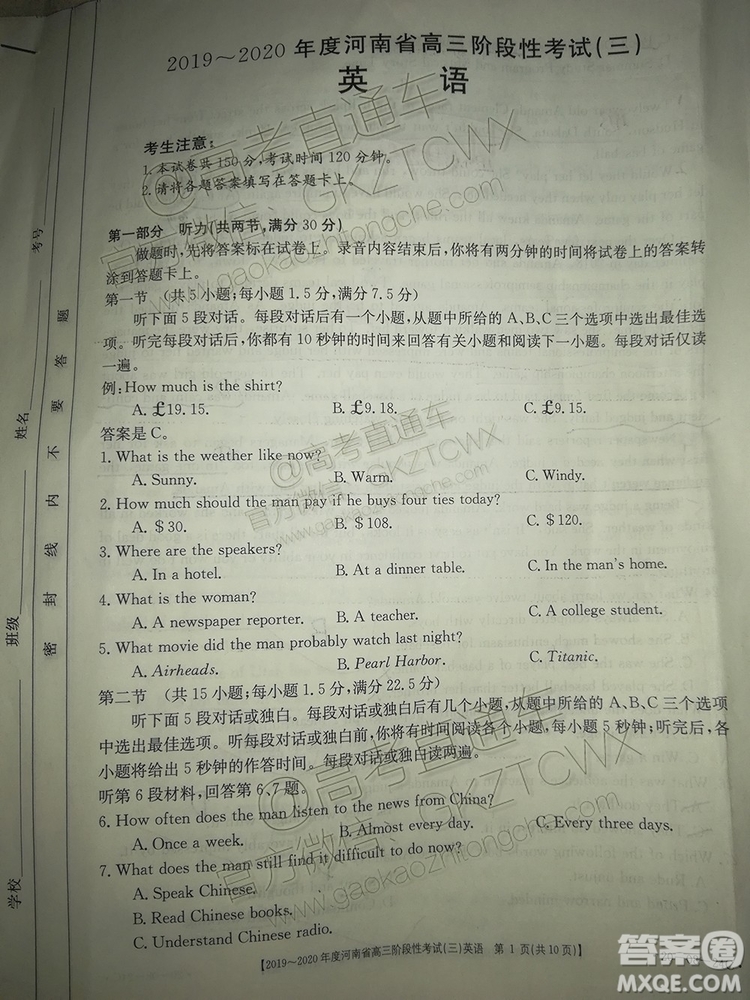 2019～2020 年度河南省高三阶段性考试(三)
英 语
考生注意：
1. 本试卷共 150 分，考试时间 120 分钟。
2. 请将各题答案填写在答题卡上。
第一部分 听力(共两节，满分 30 分)
做题时，先将答案标在试卷上。录音内容结束后，你将有两分钟的时间将试卷上的答案转
涂到答题卡上。
第一节 (共 5 小题；每小题 1.5 分，满分 7.5 分)
听下面 5 段对话。每段对话后有一个小题，从题中所给的 A、B、C 三个选项中选出最佳选
项。听完每段对话后，你都有 10 秒钟的时间来回答有关小题和阅读下一小题。每段对话仅读
一遍。
例：How much is the shirt?
A. ￡19.15. B. ￡9.18. C. ￡9.15.
答案是 C。
1. What is the weather like now?
A. Sunny. B. Warm. C. Windy.
2. How much should the man pay if he buys four ties today?
A. $30. B. $108. C. $120.
3. Where are the speakers?
A. In a hotel. B. At a dinner table. C. In the man's home.
4. What is the woman?
A. A newspaper reporter. B. A teacher. C. A college student.
5. What movie did the man probably watch last night?
A. Airheads. B. Pearl Harbor. C. Titanic.
第二节 (共 15 小题；每小题 1.5 分，满分 22.5 分)
听下面 5 段对话或独白。每段对话或独白后有几个小题，从题中所给的 A、B、C 三个选项
中选出最佳选项。听每段对话或独白前，你将有时间阅读各个小题，每小题 5 秒钟；听完后，各
小题将给出 5 秒钟的作答时间。每段对话或独白读两遍。
听第 6 段材料，回答第 6、7 题。
6. How often does the man listen to the news from China?
A. Once a week. B. Almost every day. C. Every three days.
7. What does the man still find it difficult to do now?
A. Speak Chinese.
B. Read Chinese books.
C. Understand Chinese radio.
【2019～2020 年度河南省高三阶段性考试(三)英语 第 1 页(共 10 页)】
学校 班级 姓名 考号
密 封 线 内 不 要 答 题
@高考直通车
官方微信：GKZTCWX
www.gaokaozhitongche.com
@高考直通车
官方微信：GKZTCWX
www.gaokaozhitongche.com
@高考直通车
官方微信：GKZTCWX
www.gaokaozhitongche.com
答案圈
MXQE.COM